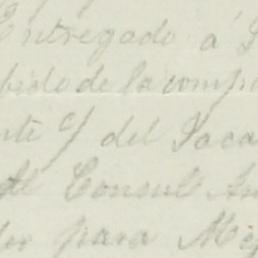 Entregado á
bido de la comp
nte c/ del Jaca
al Consul Am
der para Mej